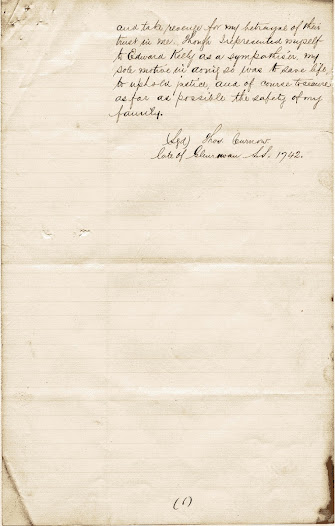 and take revenge for my betrayal of their
trust in me. Though I represented myself
to Edward Kelly as a sympathiser my
sole motive in doing so was to save life,
to uphold justice, and of course to secure
as far as possible the safety of my
family.
(Sgd) Thos. Curnow
late of Glenrowan S.S. 1742.